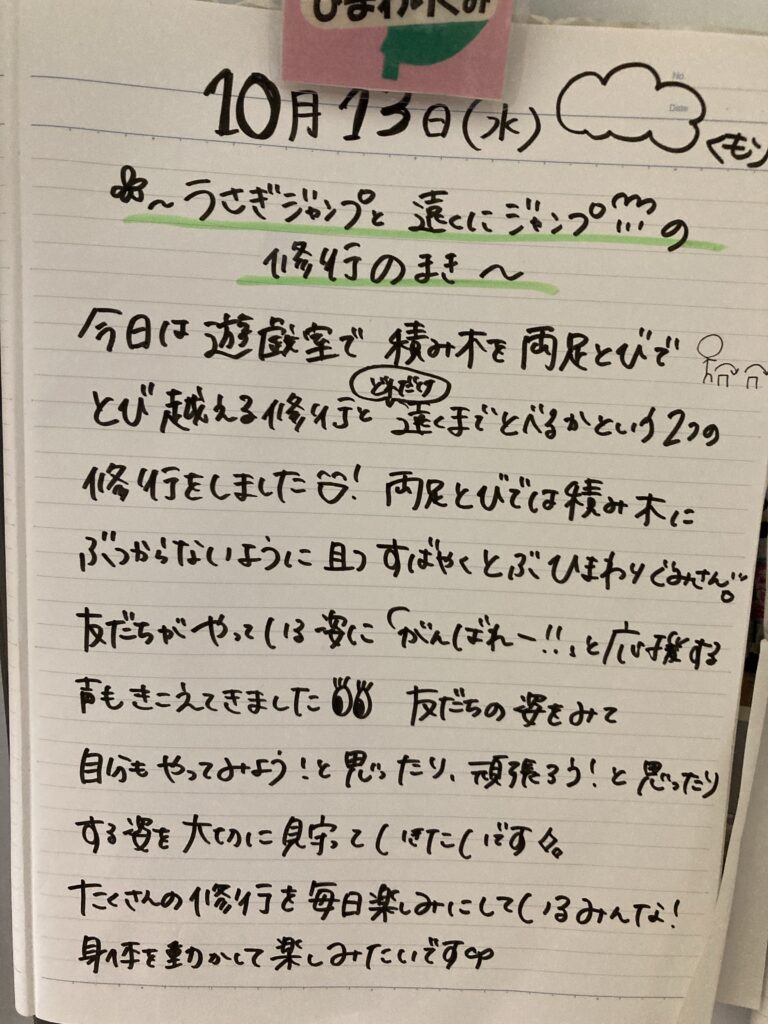 ひまわりぐみ
No.
Date
10月13日(水) くもり
～うさぎジャンプと 遠くにジャンプ!!!の
修行のまき～
今日は 遊戯室で 積み木を 両足とびで
とび越える修行と どれだけ 遠くまでとべるかという2つの
修行をしました! 両足とびでは積み木に
ぶつからないように 且つ すばやくとぶ ひまわりぐみさん。
友だちが やっている 姿に「がんばれー!!」と応援する
声も きこえてきました 友だちの 姿をみて
自分も やってみよう!と 思ったり、頑張ろう!と 思ったり
する姿を 大切に 見守っていきたいです。
たくさんの修行を 毎日楽しみにしているみんな!
身体を動かして 楽しみたいです